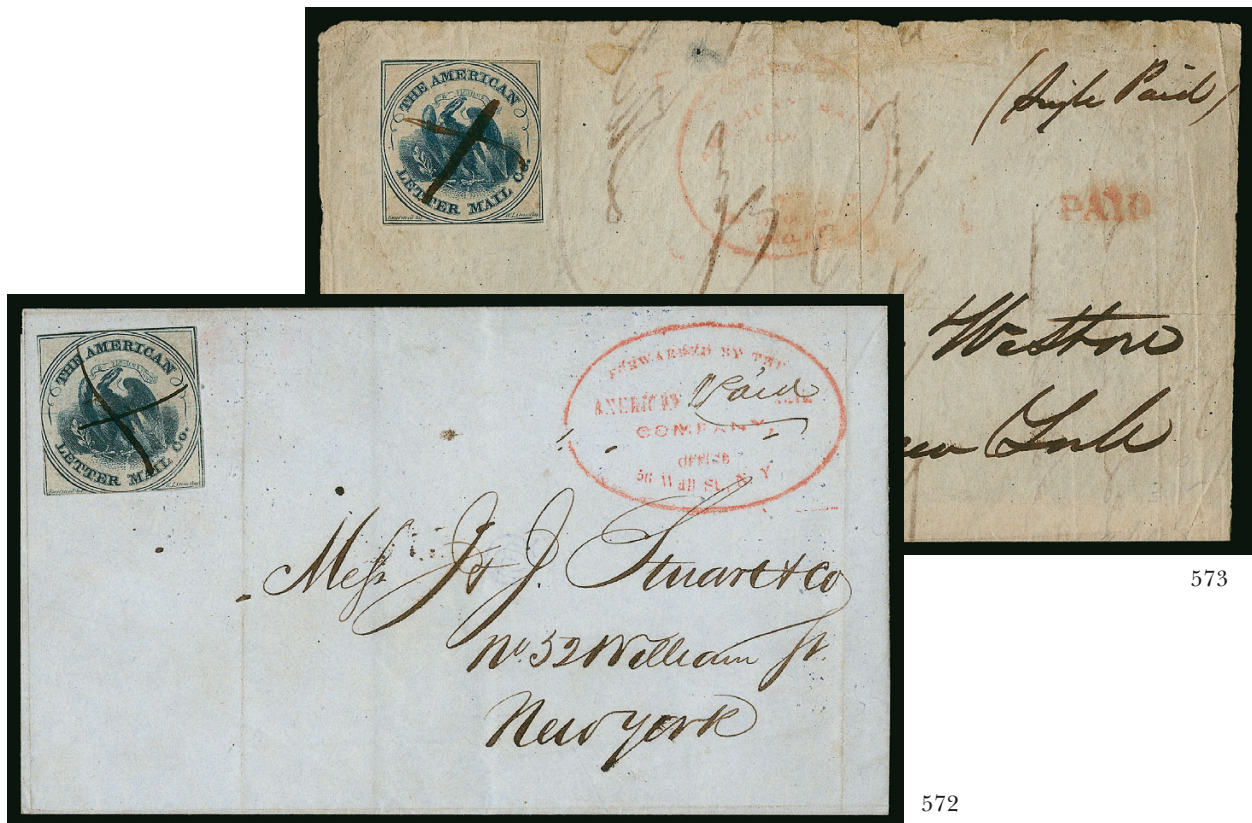 THE AMERICAN
LETTER MAIL Co.
(Single Paid)
PAID
Weston
New York
573
THE AMERICAN
LETTER MAIL Co.
FORWARDED BY THE
AMERICAN Paid MAIL
COMPANY,
OFFICE
56 Wall St. N Y
Mess J & J. Stuart & Co
No. 52 William St.
New York
572